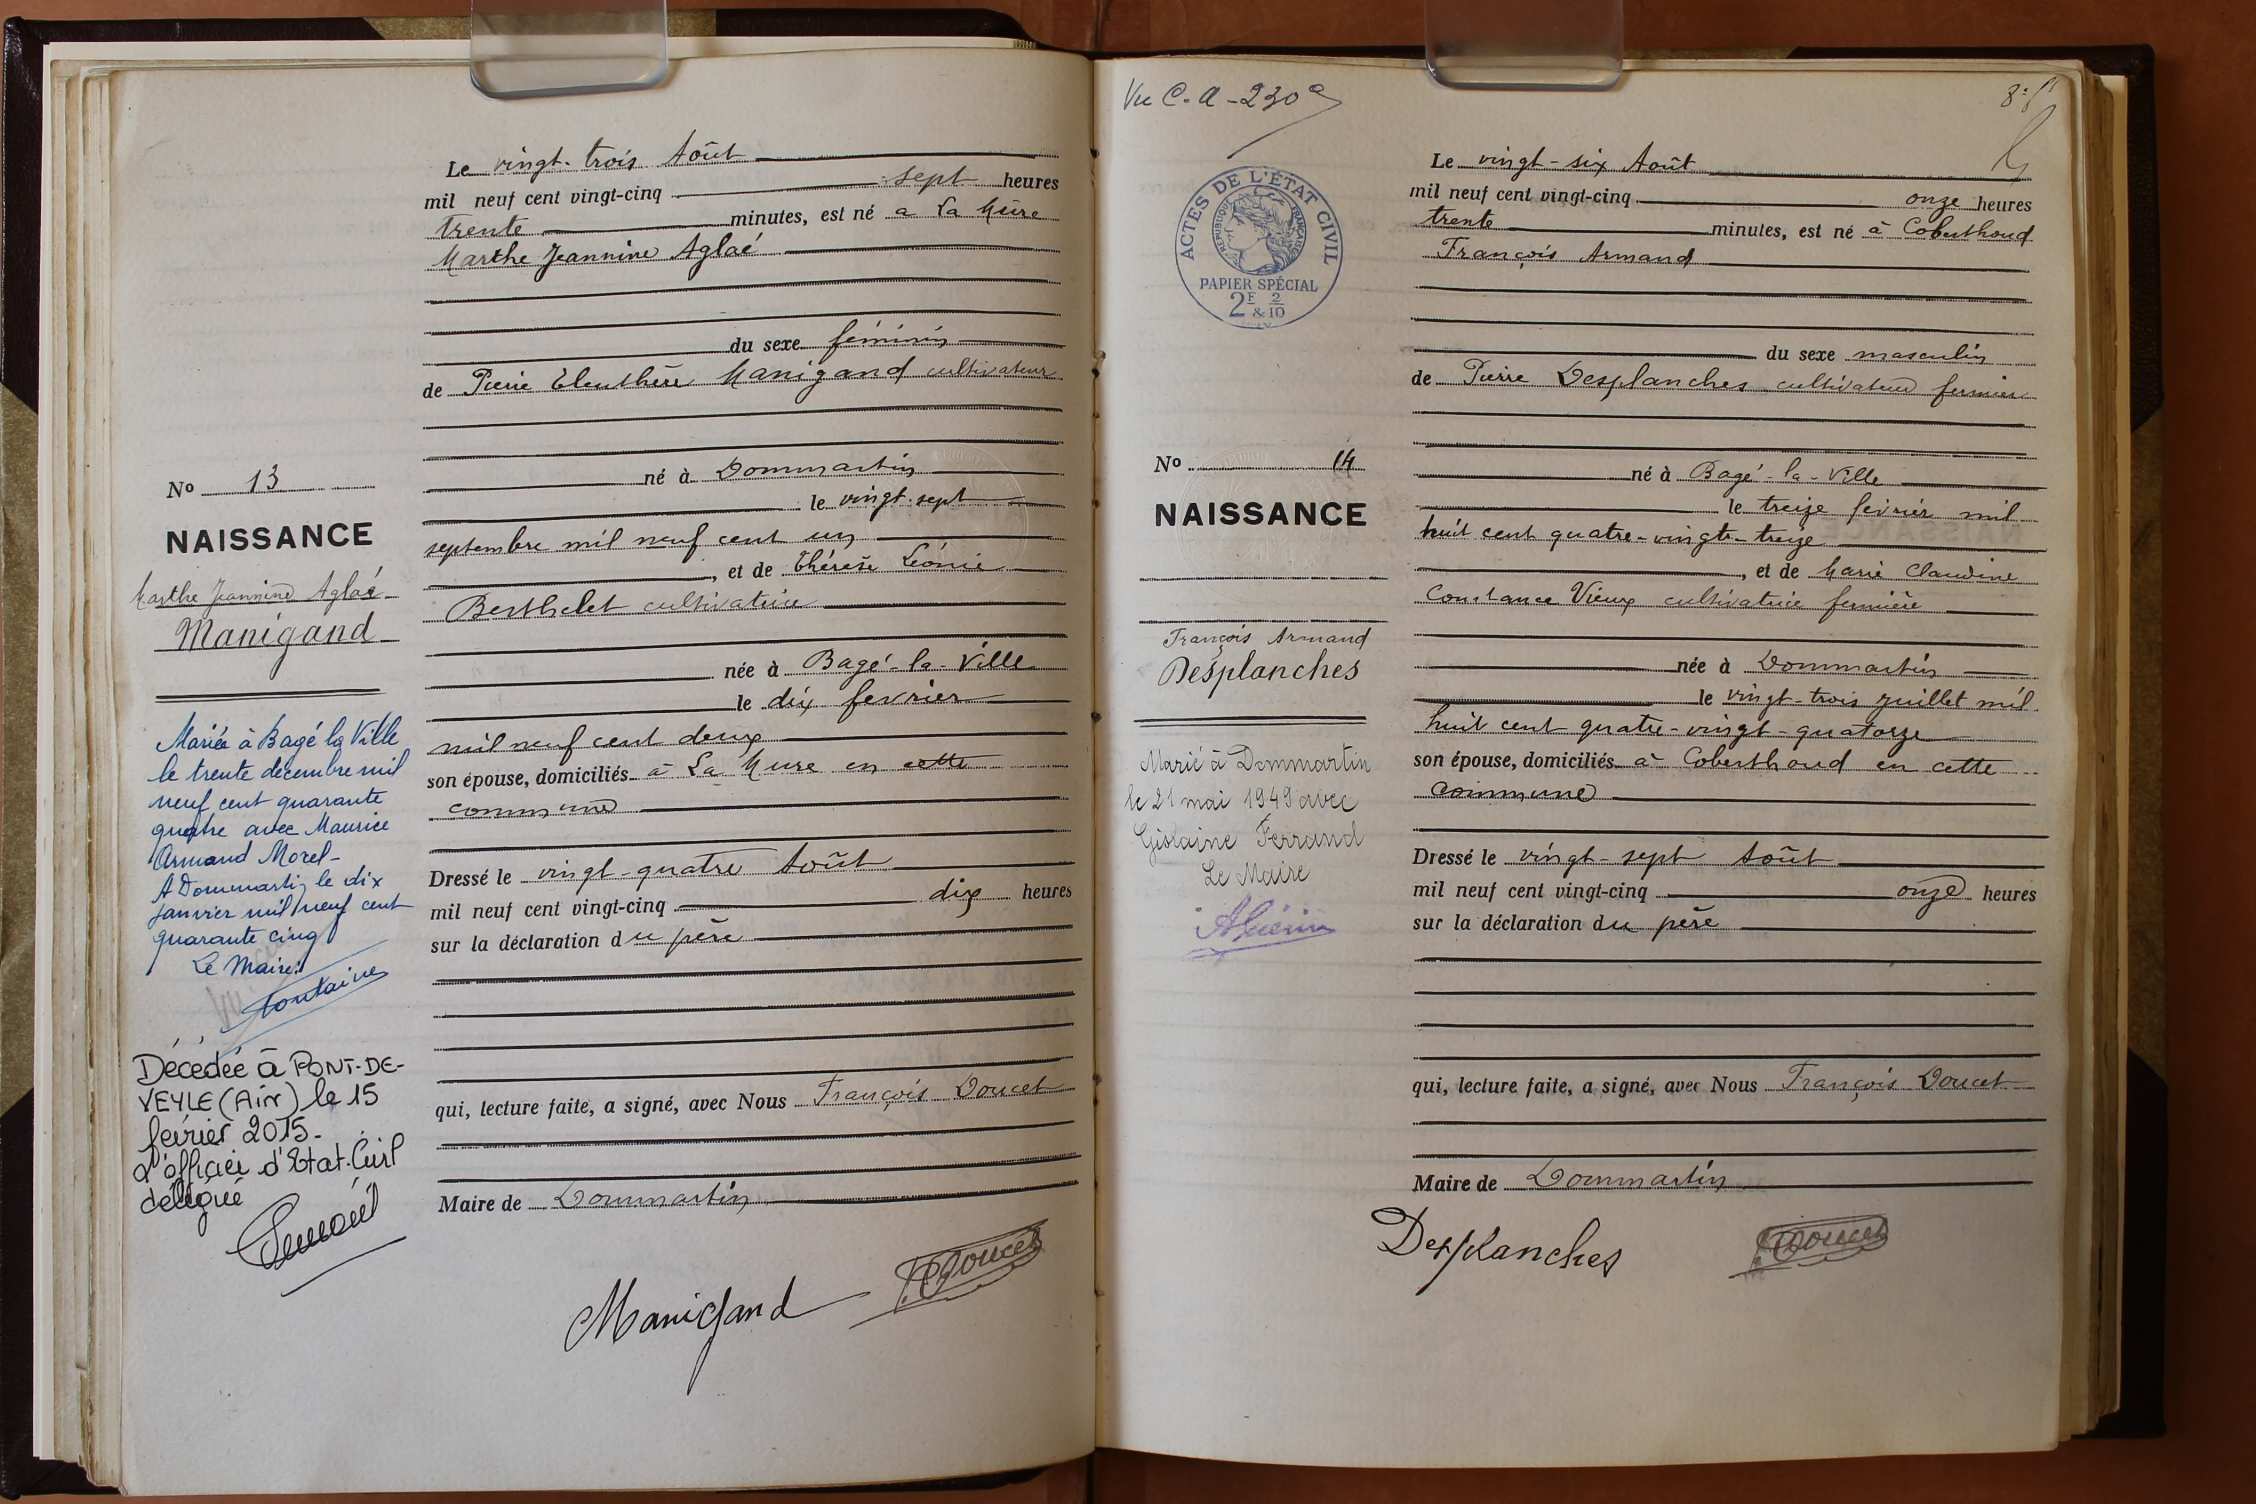 Le vingt-trois Août
mil neuf cent vingt-cinq sept heures
trente minutes, est né a La Mure
Marthe Jeannine Aglaé
du sexe féminin
de Pierre Eleuthère Manigand cultivateur
né à Dommartin
le vingt-sept
septembre mil neuf cent un
, et de Thérèse Léonie
Berthelet cultivatrice
née à Bagé-la-Ville
le dix fevrier
mil neuf cent deux
son épouse, domiciliés à La Mure en cette
commune
Dressé le vingt-quatre Août
mil neuf cent vingt-cinq dix heures
sur la déclaration du père
qui, lecture faite, a signé, avec Nous François Doucet
Maire de Dommartin
Manigand
F. Doucet
No 13
NAISSANCE
Marthe Jeannine Aglaé
Manigand
Mariée à Bagé la Ville
le trente décembre mil
neuf cent quarante
quatre avec Maurice
Armand Morel-
A Dommartin le dix
janvier mil neuf cent
quarante cinq
Le Maire:
Fontaine
Décédée à PONT-DE-
VEYLE (Ain) le 15
février 2015-
L'officier d'Etat-Civil
délégué
Vu C. A - 230
ACTES DE L'ÉTAT CIVIL
RÉPUBLIQUE FRANÇAISE
PAPIER SPÉCIAL
2F & 2/10
No 14
NAISSANCE
François Armand
Desplanches
Marié à Dommartin
le 21 mai 1949 avec
Gislaine Ferrand
Le Maire
AGuérin
Le vingt-six Août
mil neuf cent vingt-cinq onze heures
trente minutes, est né à Coberthoud
François Armand
du sexe masculin
de Pierre Desplanches cultivateur fermier
né à Bagé-la-Ville
le treize février mil
huit cent quatre-vingt-treize
, et de Marie Claudine
Constance Vieux cultivatrice fermière
née à Dommartin
le vingt-trois juillet mil
huit cent quatre-vingt-quatorze
son épouse, domiciliés à Coberthoud en cette
commune
Dressé le vingt-sept Août
mil neuf cent vingt-cinq onze heures
sur la déclaration du père
qui, lecture faite, a signé, avec Nous François Doucet
Maire de Dommartin
Desplanches
F. Doucet